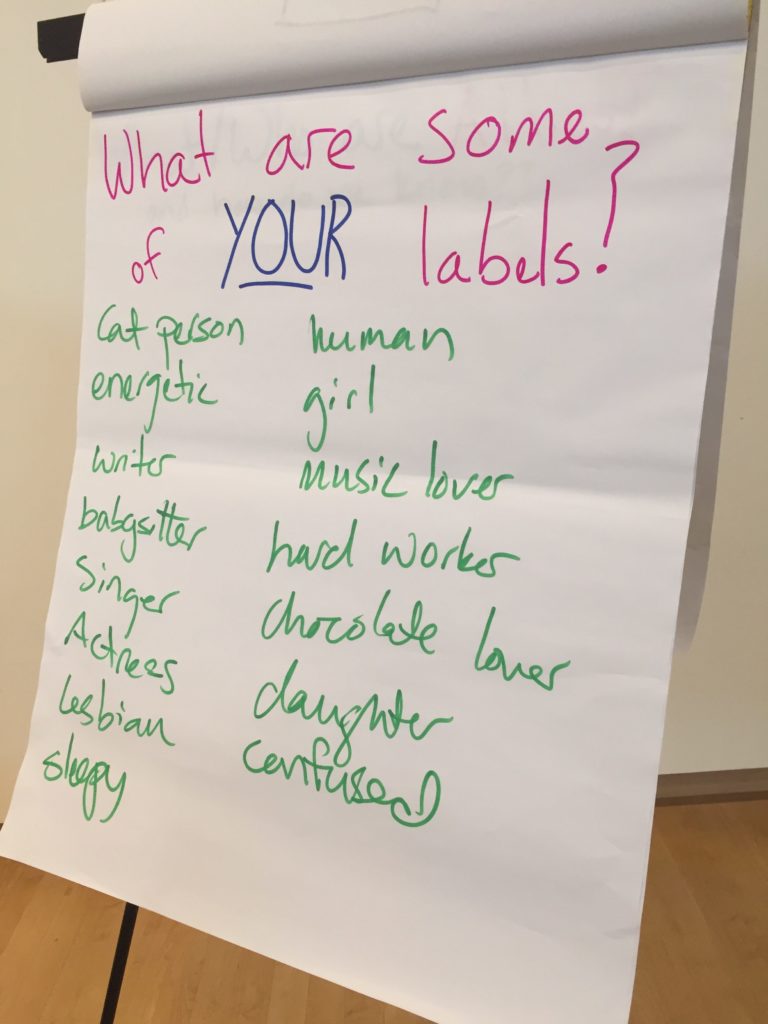 What are some
of YOUR labels?
Cat person
energetic
writer
babysitter
Singer
Actrees
lesbian
sleepy
human
girl
music lover
hard worker
chocolate lover
daughter
confused